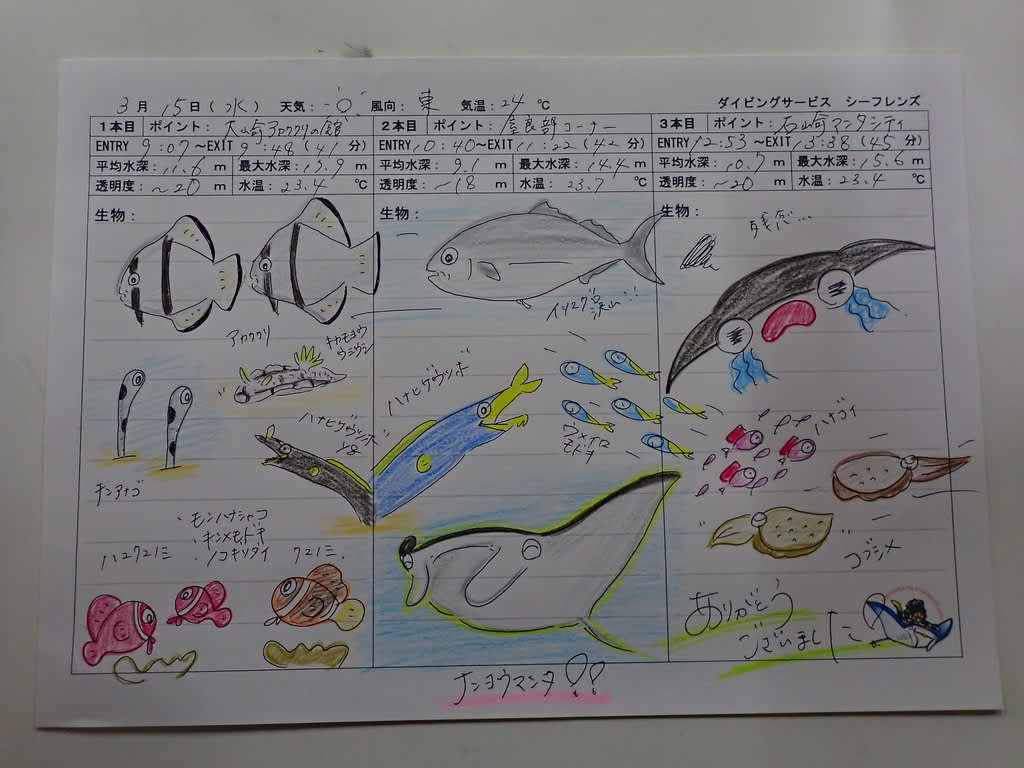 3月 15日(水) 天気: 風向: 東 気温: 24 ℃ ダイビングサービス シーフレンズ
1本目 ポイント: 大崎アカククリの館
ENTRY 9:07 ～EXIT 9:48 (41 分)
平均水深: 11.6 m 最大水深: 13.9 m
透明度: ～20 m 水温: 23.4 ℃
生物:
アカククリ
キカモヨウ
ウミウシ
ハナヒゲウツボ
チンアナゴ
・モンハナシャコ
・キンメモドキ
・ノコギリダイ
ハマクマノミ
クマノミ
2本目 ポイント: 屋良部コーナー
ENTRY 10:40 ～EXIT 11:22 (42 分)
平均水深: 9.1 m 最大水深: 14.4 m
透明度: ～18 m 水温: 23.7 ℃
生物:
イソマグロ沢山!!
ハナヒゲウツボ
ウメイロ
モドキ
ナンヨウマンタ!!
3本目 ポイント: 石崎マンタシティ
ENTRY 12:53 ～EXIT 13:38 (45 分)
平均水深: 10.7 m 最大水深: 15.6 m
透明度: ～20 m 水温: 23.4 ℃
生物:
残念…
ハナゴイ
コブシメ
ありがとう
ございました